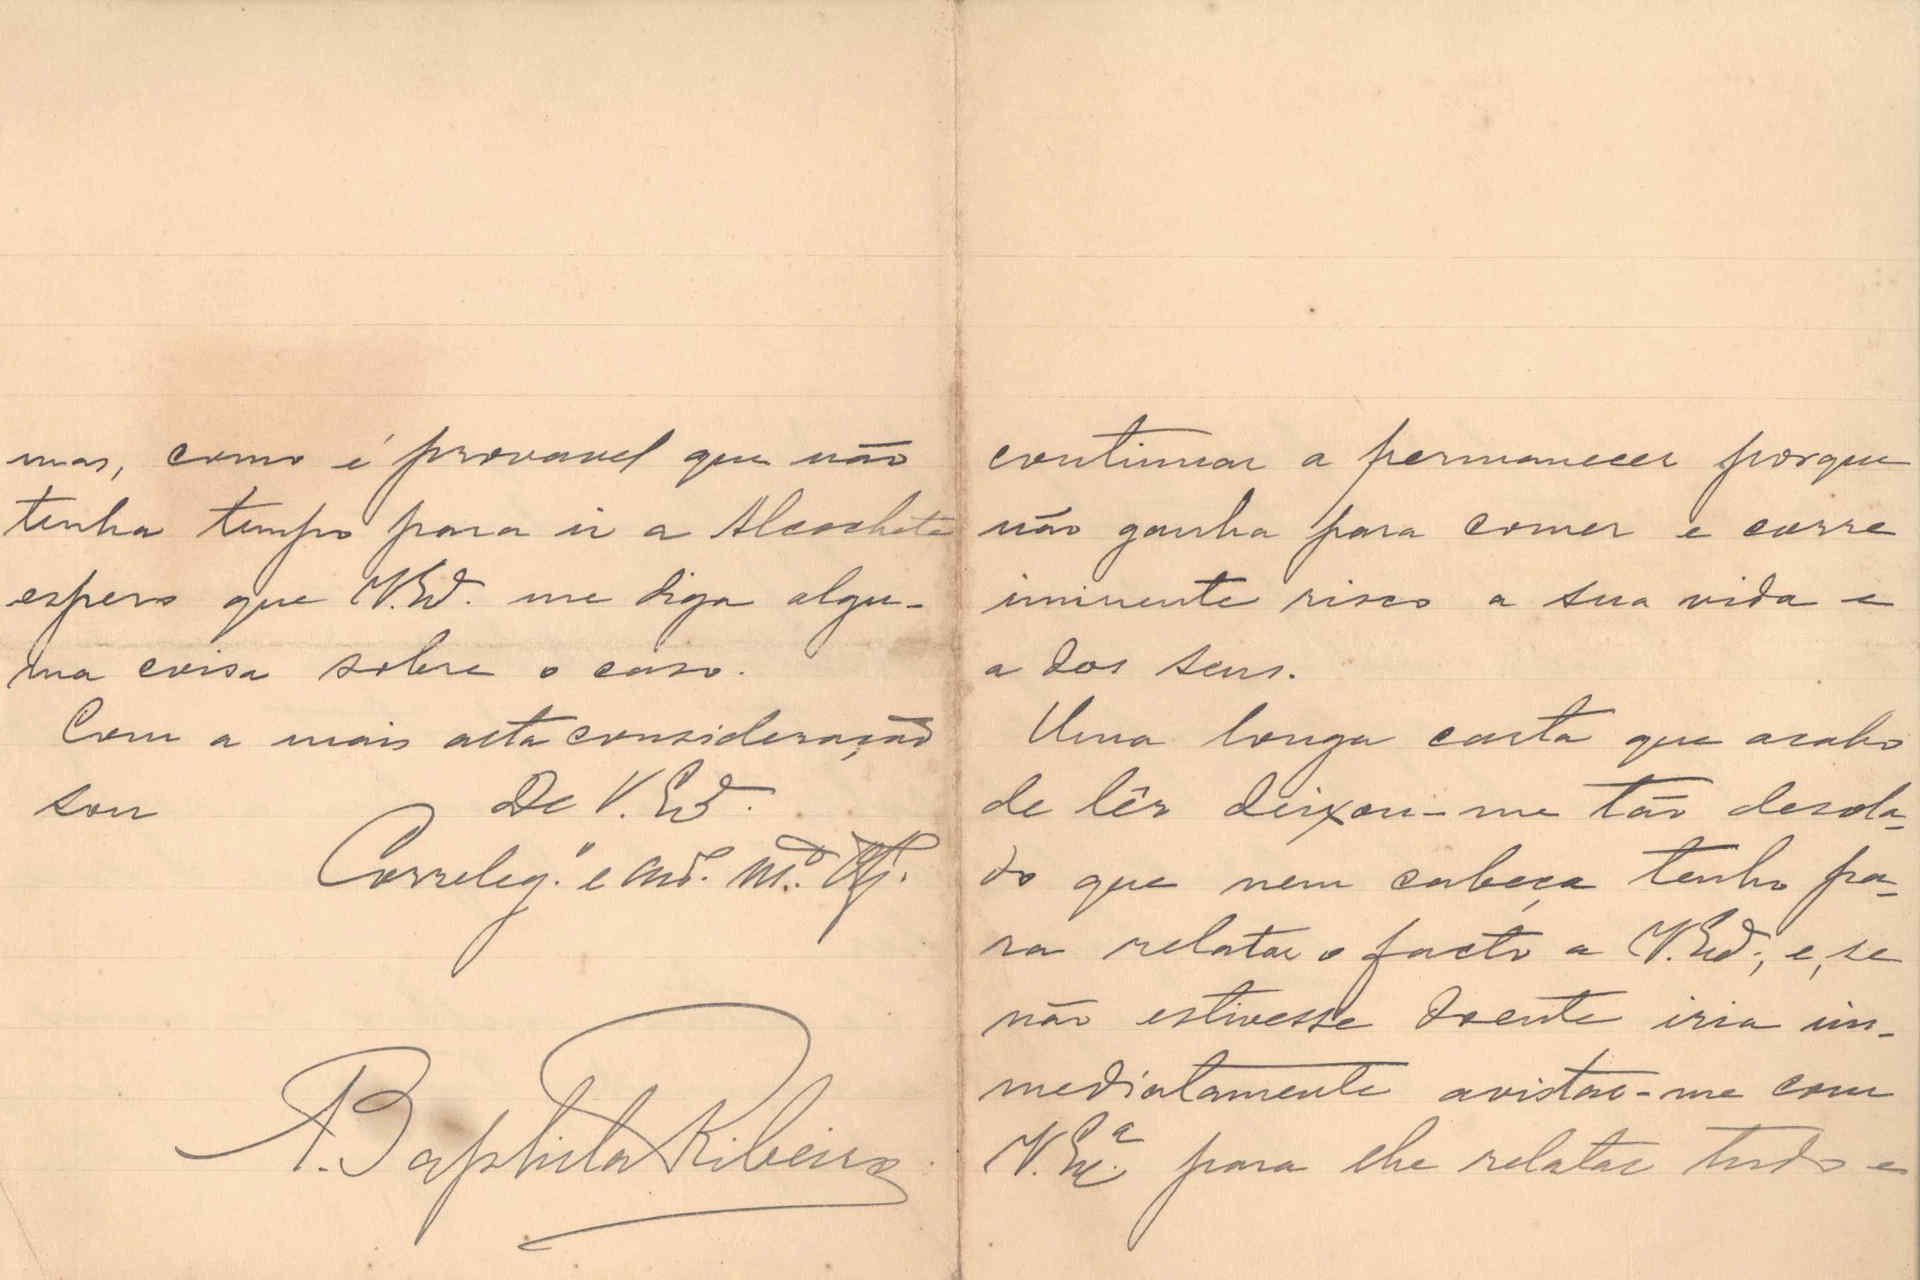 mas, como é provavel que não
tenha tempo para ir a Alcochete
espero que V. Ex.ª me diga algu-
ma coisa sobre o caso.
Com a mais alta consideração
sou De V. Ex.ª
Correleg.º e am.º m.to
A. Baptista Ribeiro
continuar a permanecer porque
não ganha para comer e corre
iminente risco a sua vida e
a dos seus.
Uma longa carta que acabo
de lêr deixou-me tão desola-
do que nem cabeça tenho pa-
ra relatar o facto a V. Ex.ª, e, se
não estivesse doente iria im-
mediatamente avistar-me com
V. Ex.ª para lhe relatar tudo e